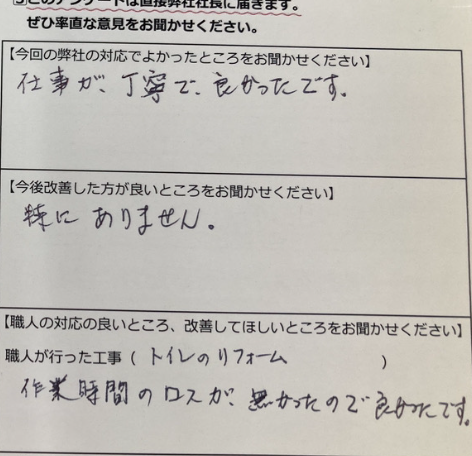 このアンケートは直接弊社社長に届きます。
ぜひ率直な意見をお聞かせください。
【今回の弊社の対応でよかったところをお聞かせください】
仕事が、丁寧で、良かったです。
【今後改善した方が良いところをお聞かせください】
特にありません。
【職人の対応の良いところ、改善してほしいところをお聞かせください】
職人が行った工事（トイレのリフォーム）
作業時間のロスが、無かったので良かったです。